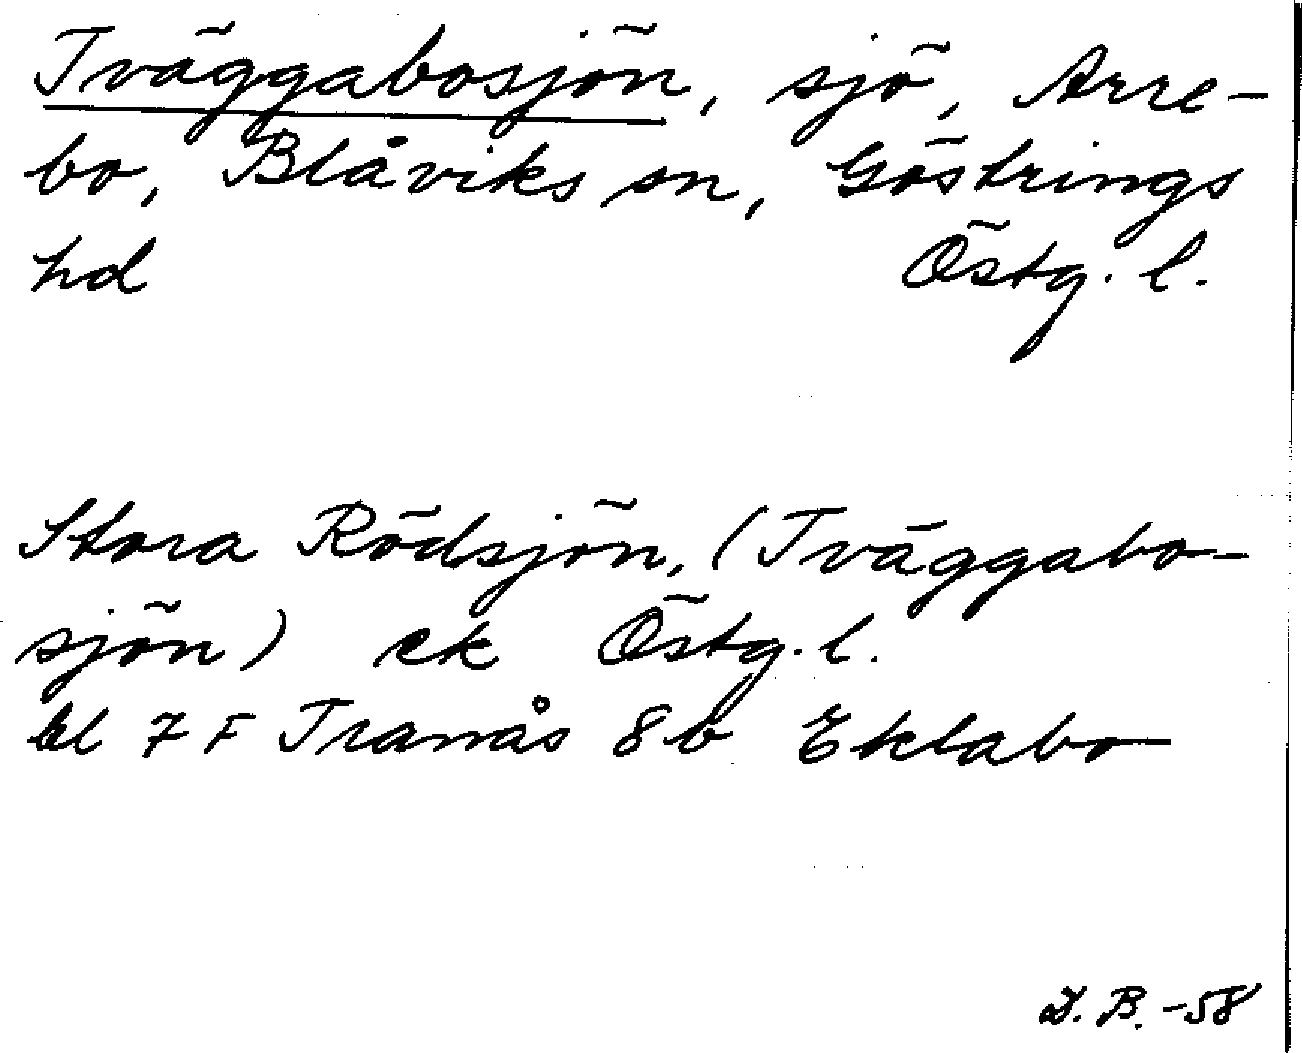 Tväggabosjön, sjö, Arre-
bo, Blåviks sn, Göstrings
hd Östg. l.
Stora Rödsjön, (Tväggabo-
sjön) ek Östg. l.
bl 7 F Tranås 8 b Eklabo
D. B. -58